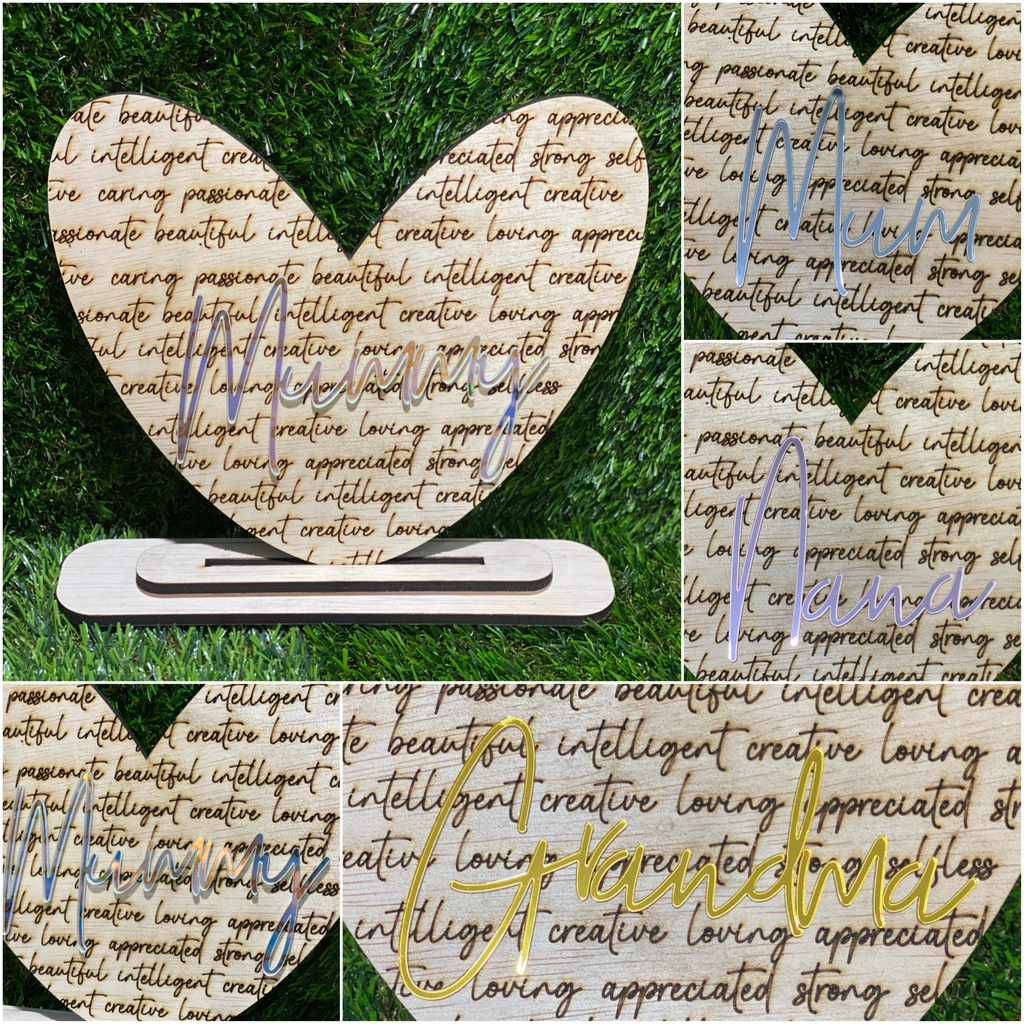 beautiful
apprecia
intelligent crea reciated strong self
ve caring passionate intelligent creative
assionate beautiful intelligent creative loving apprec
ve caring passionate beautiful intelligent creative
sionate beautiful intelligent creative loving appr
ful intelligent creative loving appreciated stron
Mummy
creative loving appreciated strong selfless
intelligent creative loving appreciated
ve loving appreciated strong sel
beautiful intelligent creati
gent creative loving
beautiful intelligent
creative lovi
ng passionate beautiful intelligent
beautiful intelligent creative lovin
intelligent creative loving apprecia
Mum
ve loving appreciated strong self
creative loving apprecia
loving appreciated strong
beautiful intelligent creative
gent creative loving
passionate intelligent
creative lovi
passionate beautiful intelligent
autiful intelligent creative lovin
ligent creative loving apprecia
Nana
loving appreciated strong sel
creative loving appreciated
loving appreciated strong
beautiful intelligent creative
passionate intelligent cr
autiful creative loving
passionate beautiful intelligent
intelligent creative loving
creative loving appreciated
Mummy
appreciated strong selfless
lligent creative loving appreciated
loving appreciated strong
beautiful intelligent creati
gent creative loving
ring passionate beautiful intelligent crea
te beautiful intelligent creative loving a
intelligent creative loving appreciated str
Grandma
eative loving appreciated strong selfless
intelligent creative loving appreciated
ve loving appreciated strong sel